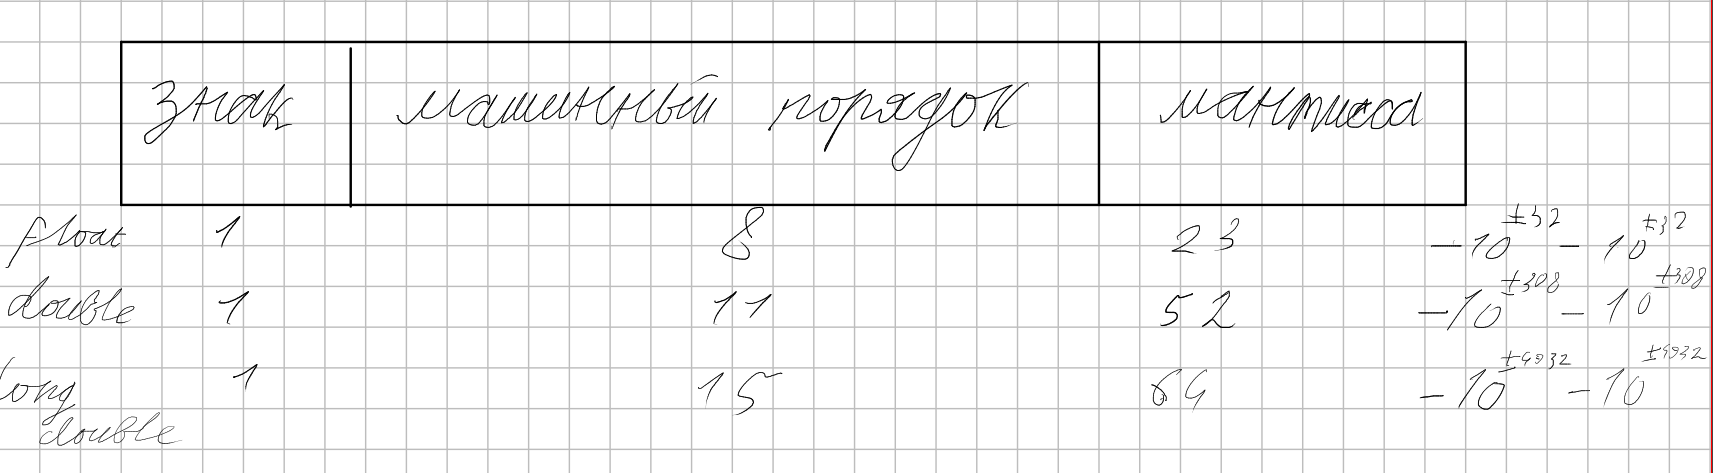 знак машинный порядок мантисса
float 1 8 23 -10^±32 - 10^±32
double 1 11 52 -10^±308 - 10^±308
long 1 15 64 -10^±4932 - 10^±4932
double